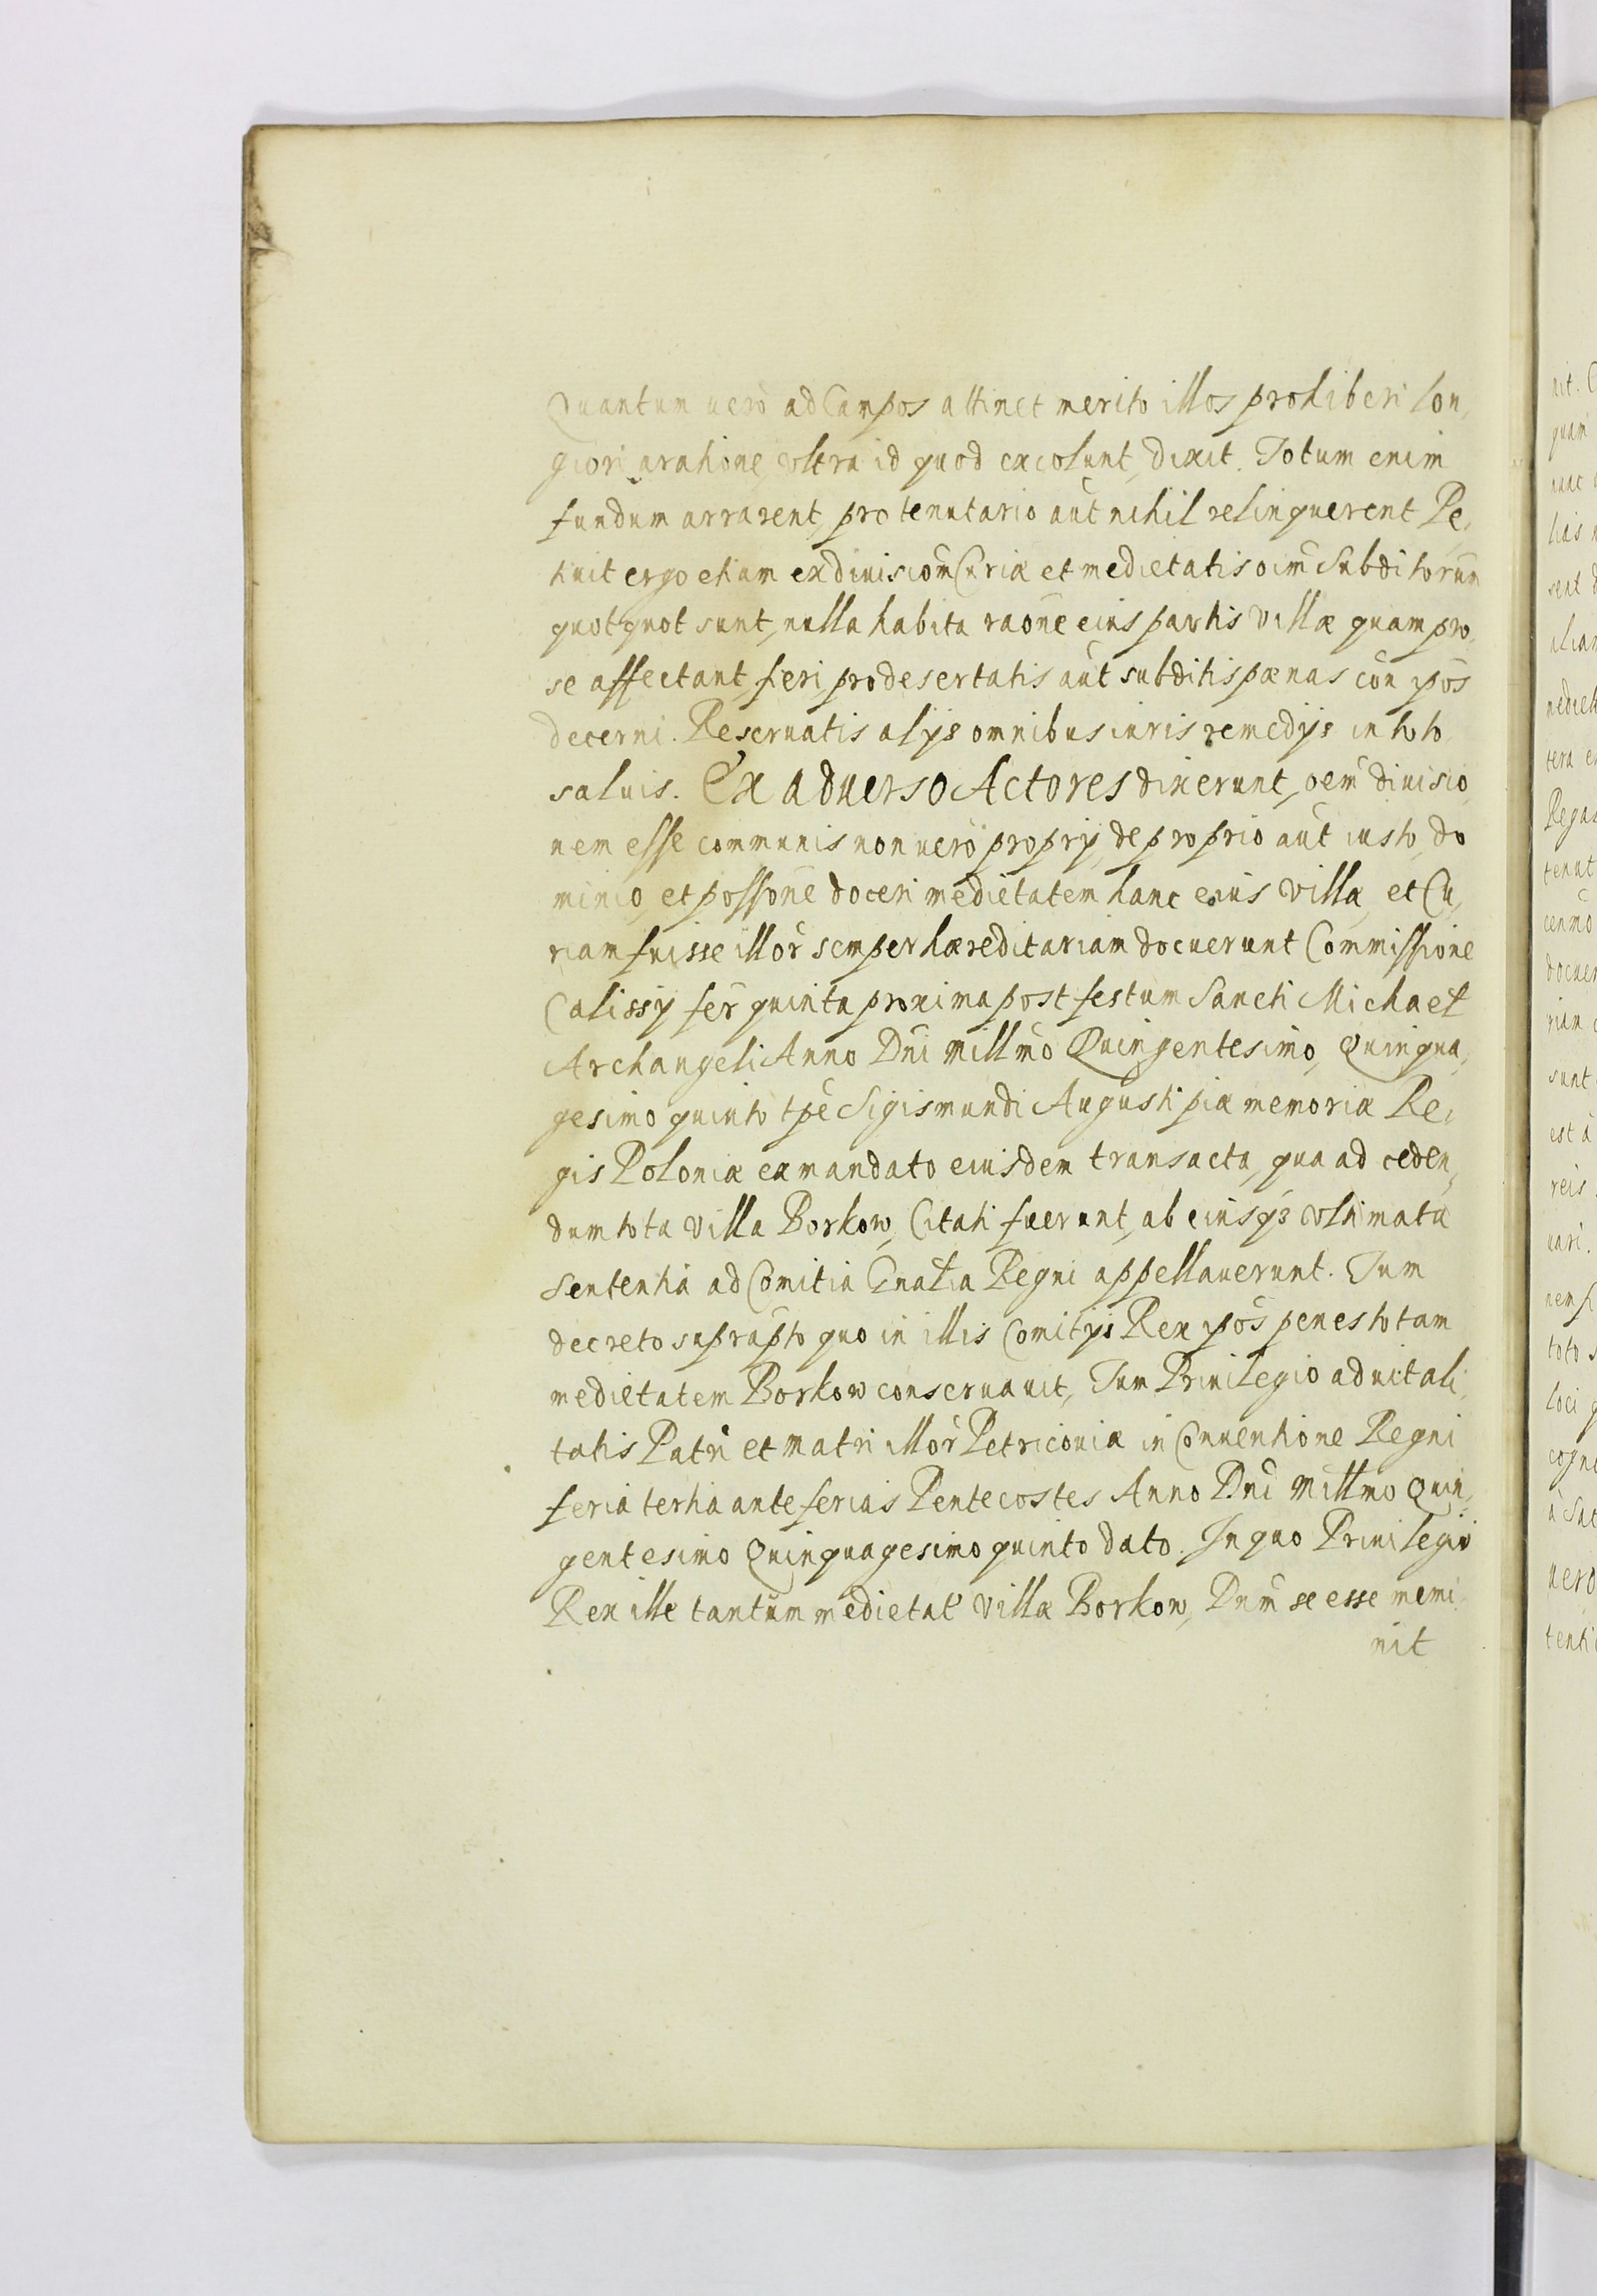 Quantum uerò ad Campos attinet merito illos prohiberi lon,
giori aratione, vltra id quod excolunt, dixit. Totum enim
fundum arrarent, pro tenutario aut nihil relinquerent Pe,
tiuit ergo etiam ex diuisiom̃ Curiæ et medietatis oim̃ Subditorum
quotquot sunt, nulla habita raone eius partis Villæ quam pro,
se affectant fieri, pro desertatis aut subditis pænas con ip̃os
decerni. Reseruatis alijs omnibus iuris remedijs in toto
saluis. Ex aduerso Actores dixerunt, oem̃ diuisio,
nem esse communis non uerò proprij, de proprio aut iusto, do
minio, et possone doceri medietatem hanc eius Villæ, et Cu,
riam fuisse illor̃ semper hæreditariam docuerunt Commissione
Calissij fer̃ quinta proxima post festum Sancti Michael
Archangeli Anno Dni Millmo Quingentesimo, Quinqua,
gesimo quinto tp̃e Sigismundi Augusti piæ memoriæ Re,
gis Poloniæ ex mandato eiusdem transacta, qua ad ceden,
dum tota Villa Borkow, Citati fuerunt, ab eius ys vltimata
Sententia ad Comitia Gnalia Regni appellauerunt. Tum
decreto suprapto quo in illis Comitijs Rex ip̃os penes totam
medietatem Borkow conseruauit, Tum Priuilegio aduitali,
tatis Patri et matri illor̃ Petricouiæ in Conuentione Regni
feria tertia ante ferias Pentecostes Anno Dni Millmo Quin,
gentesimo Quinquagesimo quinto dato. In quo Priuilegio
Rex ille tantum medietat' Villæ Borkow, Dnum se esse memi,
nit